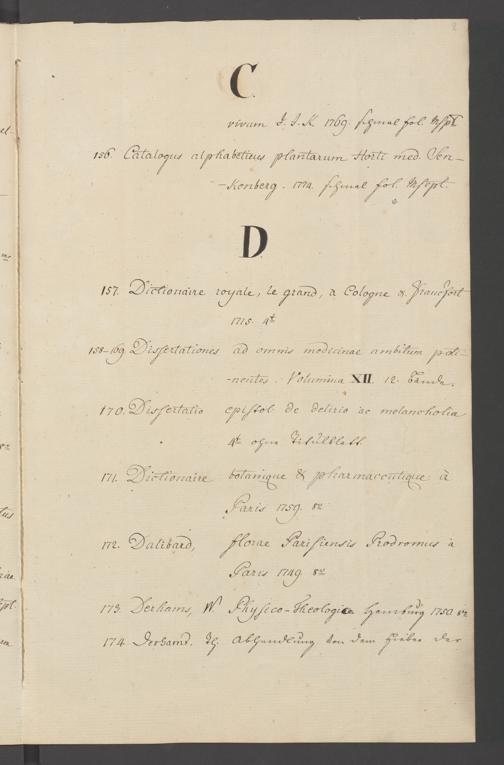 C
vivum J. J. K 1769. schmal fol. Mspt
156. Catalogus alphabeticus plantarum Horti med. Sen-
-kenberg. 1774. schmal fol. Mscpt.
D
157. Dictionaire royale, le grand, a Cologne & Francfort
1715. 4t
158-169 Dissertationes ad omnis medicinae ambitum perti-
-nentes. Volumina XII. 12. Bände.
170. Dissertatio epistol. de delirio ac melancholia
4t ohne Titulblatt.
171. Dictionaire botanique & pharmaceutique à
Paris 1759. 8v.
172. Dalibard, florae Parisiensis Prodromus à
Paris 1749. 8v.
173. Derhams, W. Physico-Theologie Hamburg 1750. 8v.
174. Abhandlung von dem Fieber der